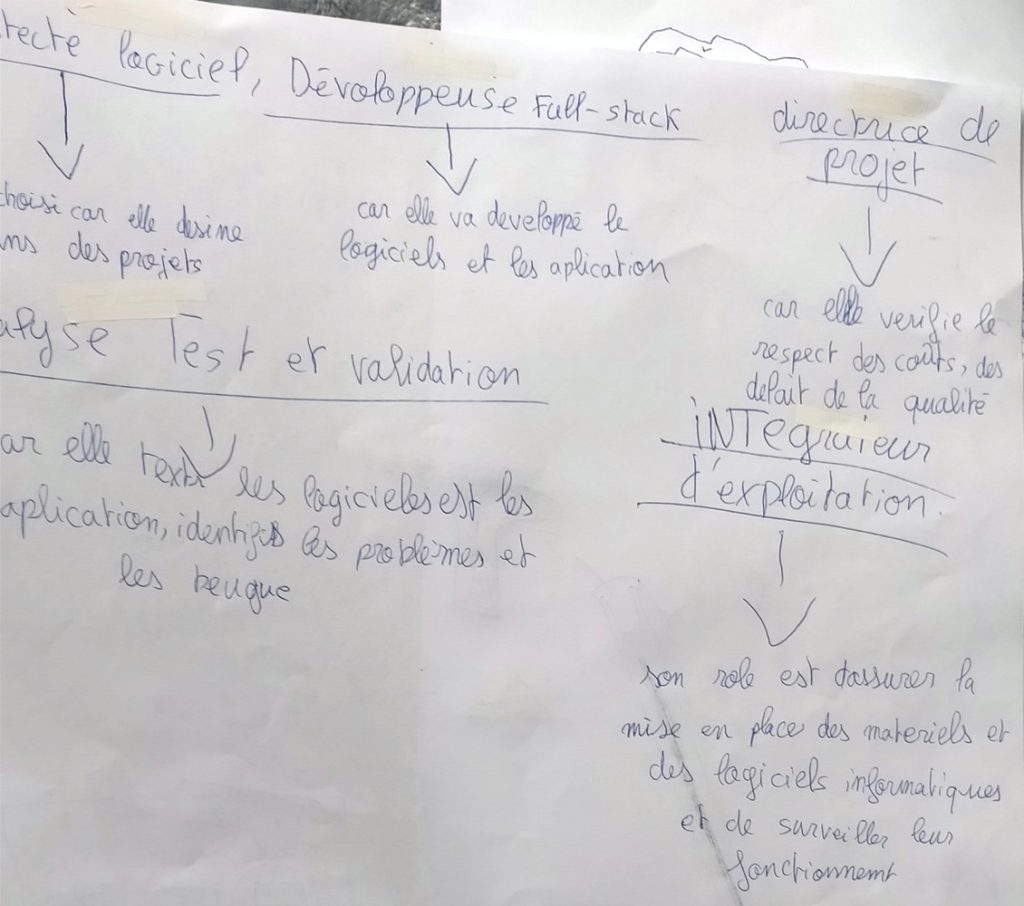 tecte logiciel, Dévoloppeuse Full-stack
choisi car elle desine
ns des projets
car elle va developpé le
logiciels et les aplication
directrice de
projet
car elle verifie le
respect des coûts, des
defait de la qualité
alyse Test et validation
ar elle texte les logicieles est les
aplication, identifis les problèmes et
les beugue
iNTegraieur
d'exploitation.
son role est d'assurer la
mise en place des materiels et
des logiciels informatiques
et de surveiller leur
fonctionnemt